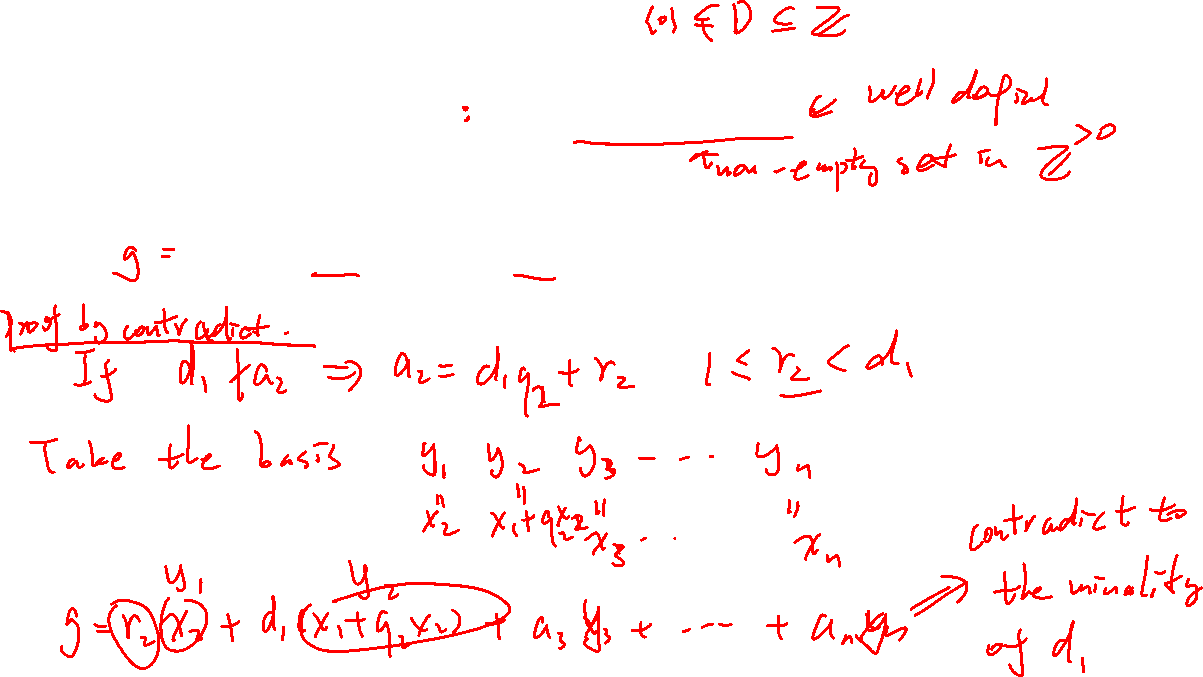 {0} ⊊ D ⊆ ℤ
: ↙ well
↑ non-empty set in ℤ^{>0}
g =
Proof by contradict.
If d₁ ∤ a₂ ⇒ a₂ = d₁q₂ + r₂ 1 ≤ r₂ < d₁
Take the basis y₁ y₂ y₃ - - - - yₙ
" " " "
x₂ x₁+q₂x₂ x₃ . . xₙ
y₁ y₂
g = r₂(x₂) + d₁(x₁+q₂x₂) + a₃y₃ + - - - + aₙyₙ ⇒ contradict to
the minality
of d₁